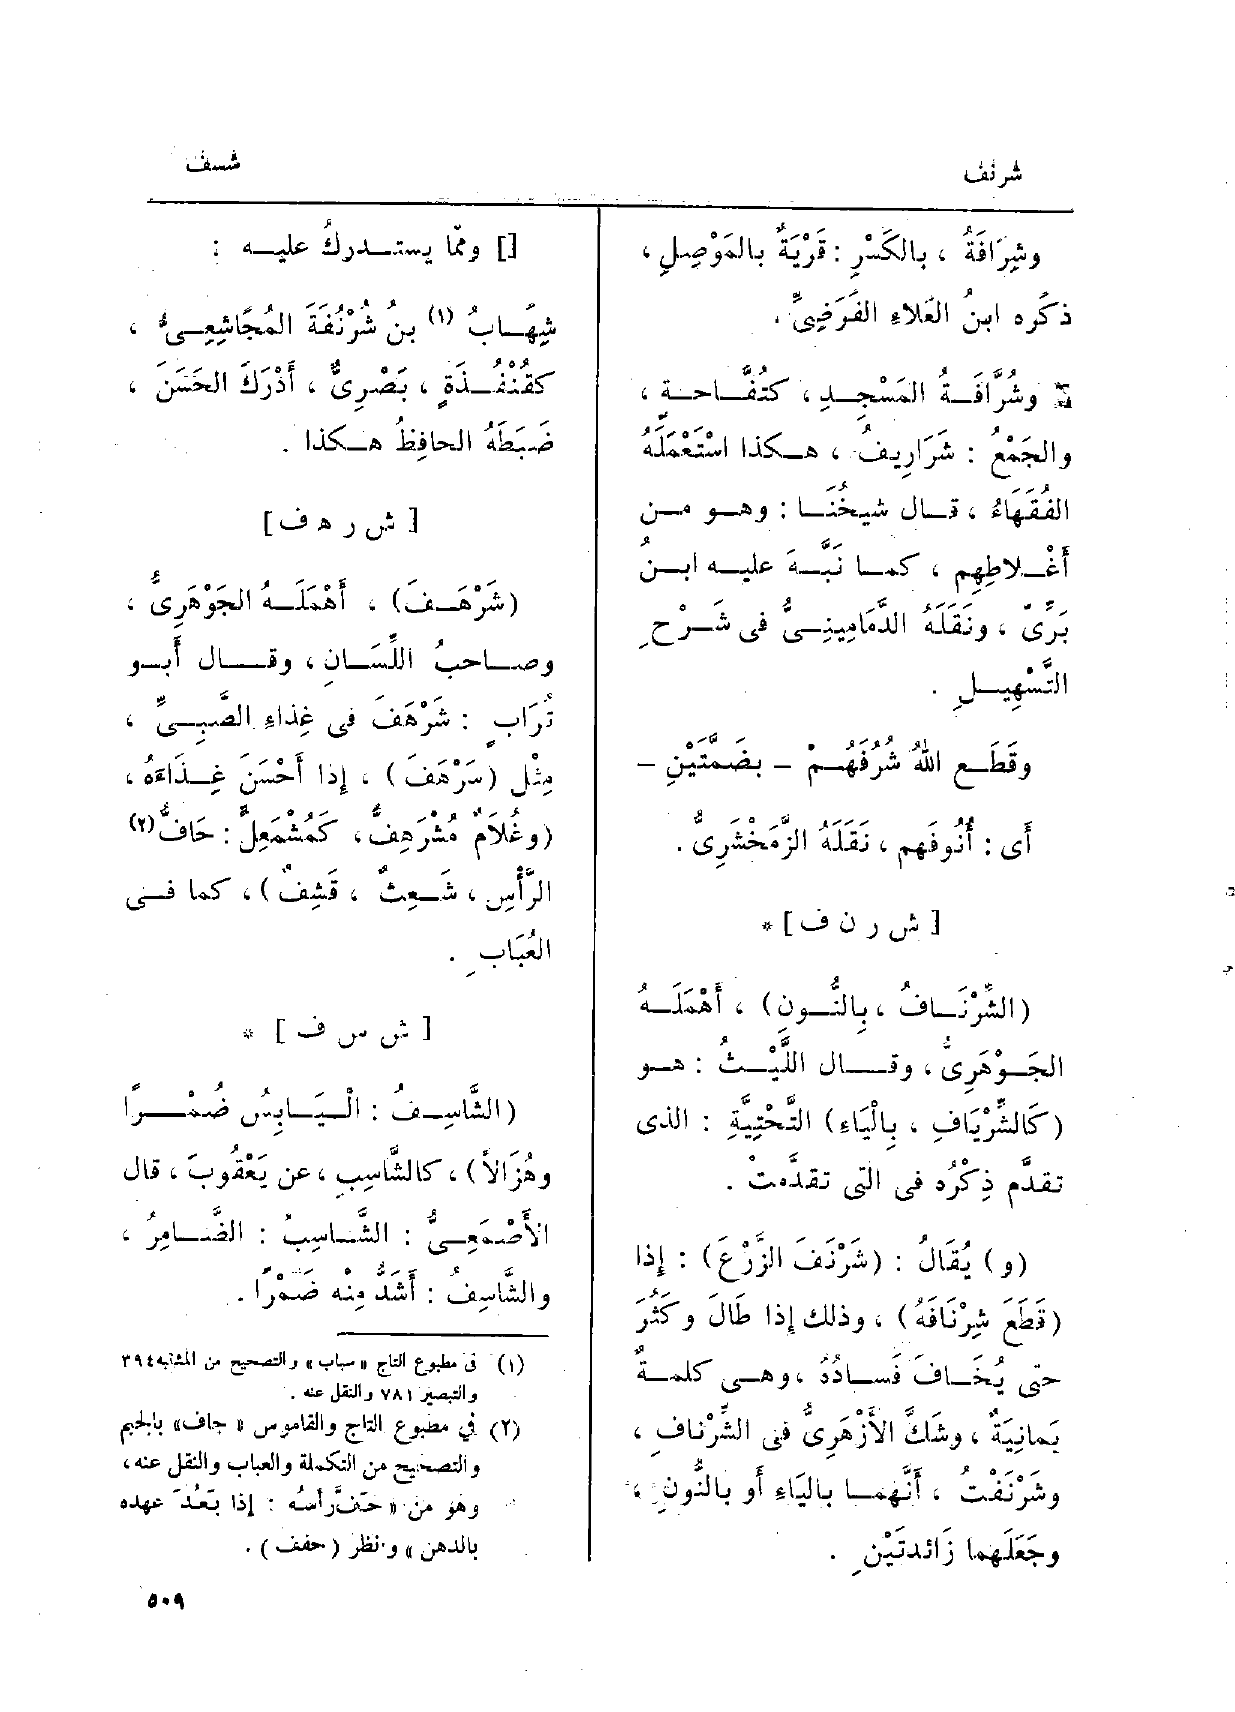 شرنف
شسف
وشِرَافَةُ ، بالكَسْرِ : قَرْيَةٌ بالمَوْصِلِ ،
ذكُره ابنُ العَلاءِ الفَرَضِيُّ .
وشُرَّافَةُ المَسْجِدِ ، كتُفَّاحةٍ ،
والجَمْعُ : شَرَارِيفُ ، هكذا اسْتَعْمَلَهُ
الفُقَهَاءُ ، قال شيخُنَا : وهو من
أَغْلاطِهِم ، كما نَبَّهَ عليه ابنُ
بَرِّىّ ، ونَقَلَهُ الدَّمَامِينِىُّ فى شَرْحِ
التَّسْهِيلِ .
وقَطَع اللهُ شُرُفَهُمْ – بضَمَّتَيْنِ –
أَى : أُنُوفَهُم ، نَقَلَهُ الزَّمَخْشَرِىُّ .
[ ش ر ن ف ] *
(الشِّرْنَافُ ، بِالنُّونِ) ، أَهْمَلَهُ
الجَوْهَرِىُّ ، وقال اللَّيْثُ : هو
(كَالشِّرْيَافِ ، بِالْيَاءِ) التَّحْتِيَّةِ : الذى
تقدَّم ذِكْرُه فى التى تقدَّمتْ .
(و) يُقَالُ : (شَرْنَفَ الزَّرْعَ) : إِذا
(قَطَعَ شِرْنَافَهُ) ، وذلك إِذا طَالَ وكَثُرَ
حتى يُخَافَ فَسَادُهُ ، وهى كلمةٌ
يَمانِيَةٌ ، وشَكَّ الأَزْهَرِىُّ فى الشِّرْنافِ ،
وشَرْنَفْتُ ، أَنَّهما بالياءِ أَو بالنُّونِ ،
وجَعَلَهما زَائدتَيْنِ .
[] وممّا يستدركُ عليه :
شِهَابُ (١) بنُ شُرْنُفَةَ المُجَاشِعِىُّ ،
كقُنْفُذَةٍ ، بَصْرِىٌّ ، أَدْرَكَ الحَسَنَ ،
ضَبَطَهُ الحافِظُ هكذا .
[ ش ر ه ف ]
(شَرْهَفَ) ، أَهْمَلَهُ الجَوْهَرِىُّ ،
وصاحبُ اللِّسَانِ ، وقال أَبو
تُرَابٍ : شَرْهَفَ فى غِذاءِ الصَّبِىِّ ،
مِثْل (سَرْهَفَ) ، إِذا أَحْسَنَ غِذَاءَهُ ،
(وغُلَامٌ مُشْرَهِفٌّ ، كَمُشْمَعِلٍّ : حَافُّ (٢)
الرَّأْسِ ، شَعِثٌ ، قَشِفٌ) ، كما فى
العُبَابِ .
[ ش س ف ] *
(الشَّاسِفُ : الْيَابِسُ ضُمْرًا
وهُزَالاً) ، كالشَّاسِبِ ، عن يَعْقُوبَ ، قال
الأَصْمَعِىُّ : الشَّاسِبُ : الضَّامِرُ ،
والشَّاسِفُ : أَشَدُّ مِنْه ضُمْرًا .
(١) فى مطبوع التاج « سباب » والتصحيح من المشتبه ٣٩٤
والتبصير ٧٨١ والنقل عنه .
(٢) فى مطبوع التاج والقاموس « جاف » بالجيم
والتصحيح من التكملة والعباب والنقل عنه ،
وهو من « حَفَّ رأسُه : إذا بَعُدَ عهده
بالدهن » وانظر ( حفف ) .
٥٠٩